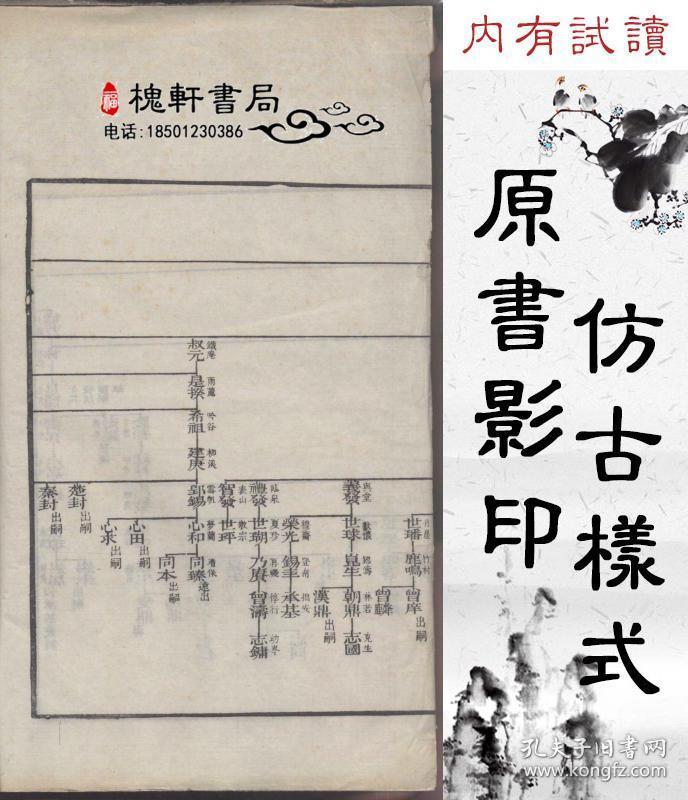 内有試讀
原書影印
仿古樣式
槐軒書局
福
电话:18501230386
世璠 鹿鳴 曾庠 出嗣
曾麟
義發 世球 崑生 朝鼎 志國
漢鼎 出嗣
榮光 錫圭 承基
禮發 世瑚 乃賡 曾濤 志鏞
智發 世坪
叔元 是揆 希祖 建庚 邱錫 心和 同臻 遠出
同本 出嗣
心田 出嗣
心求 出嗣
楚封 出嗣
秦封 出嗣
孔夫子旧书网
www.kongfz.com